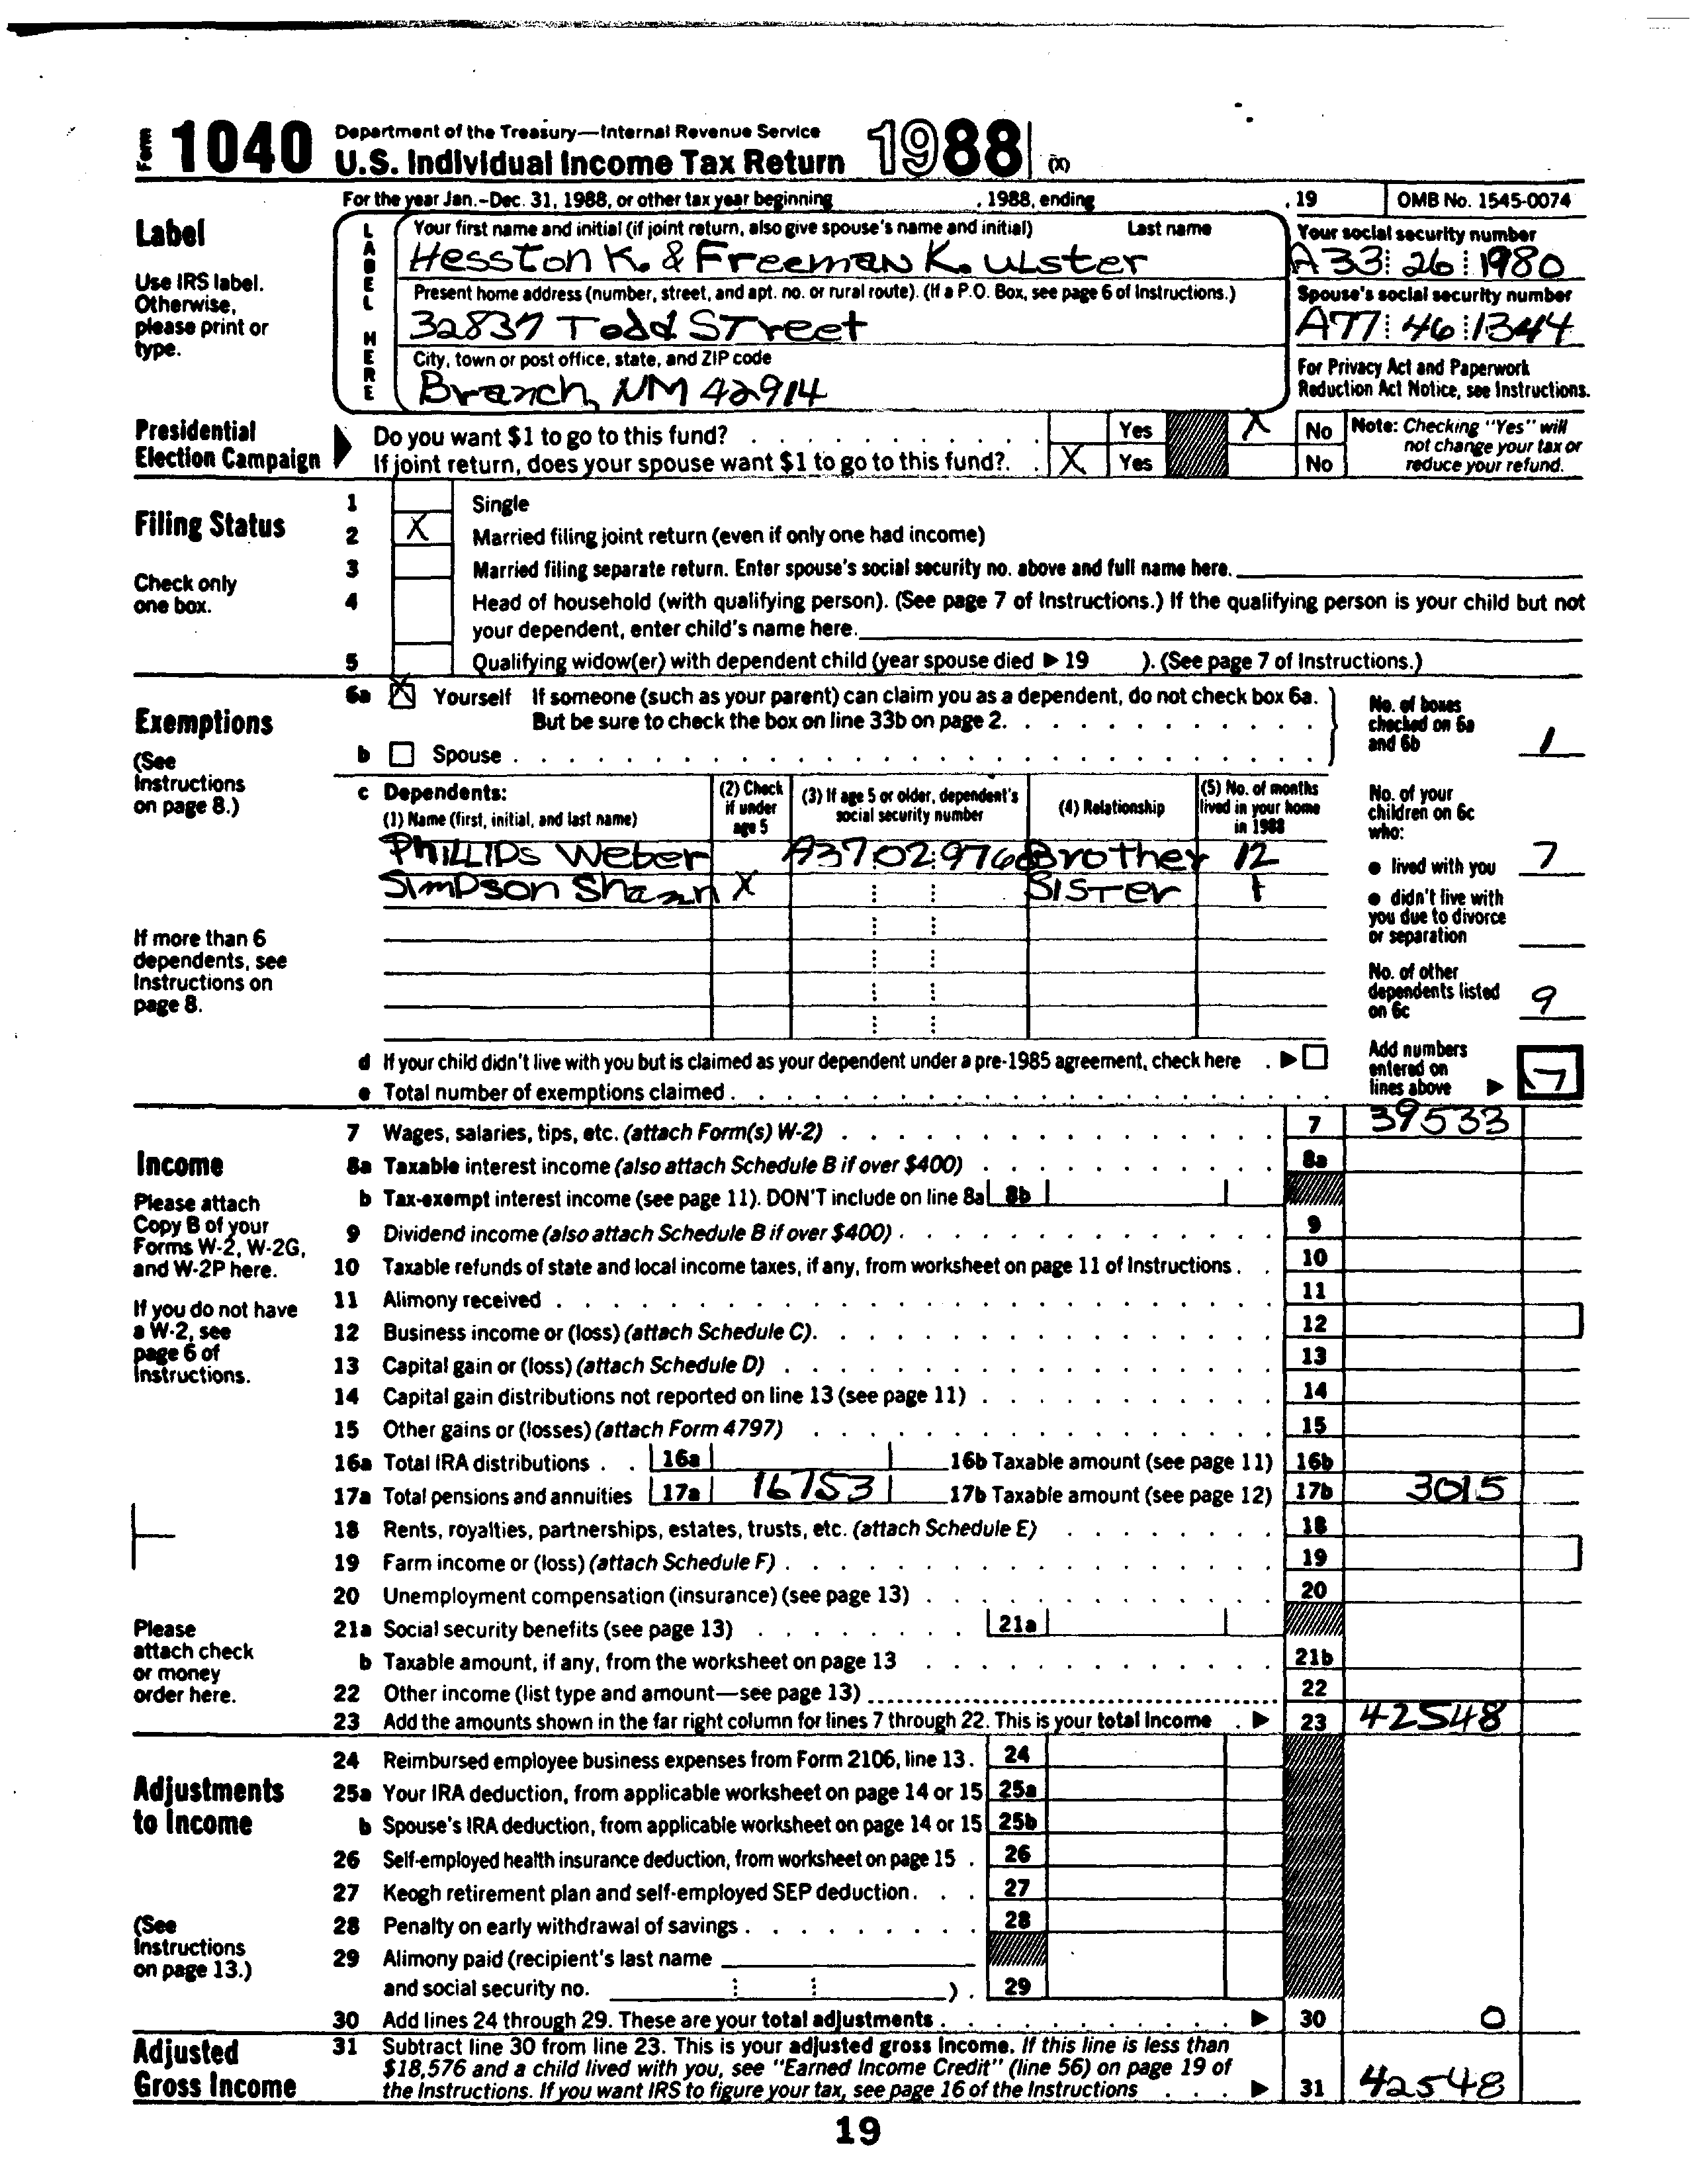 Form 1040 Department of the Treasury—Internal Revenue Service
U.S. Individual Income Tax Return 1988 (X)
For the year Jan.-Dec. 31, 1988, or other tax year beginning , 1988, ending , 19 OMB No. 1545-0074
Label
Use IRS label.
Otherwise,
please print or
type.
LABEL HERE
Your first name and initial (if joint return, also give spouse's name and initial) Last name
Hesston K. & Freeman K. Ulster
Your social security number
A33 26 1980
Present home address (number, street, and apt. no. or rural route). (If a P.O. Box, see page 6 of Instructions.)
32837 Todd Street
Spouse's social security number
A77 46 1344
City, town or post office, state, and ZIP code
Branch, NM 42914
For Privacy Act and Paperwork
Reduction Act Notice, see Instructions.
Presidential
Election Campaign
Do you want $1 to go to this fund? Yes X No
If joint return, does your spouse want $1 to go to this fund? X Yes No
Note: Checking "Yes" will
not change your tax or
reduce your refund.
Filing Status
Check only
one box.
1 Single
2 X Married filing joint return (even if only one had income)
3 Married filing separate return. Enter spouse's social security no. above and full name here.
4 Head of household (with qualifying person). (See page 7 of Instructions.) If the qualifying person is your child but not
your dependent, enter child's name here.
5 Qualifying widow(er) with dependent child (year spouse died ▶ 19 ). (See page 7 of Instructions.)
Exemptions
(See
Instructions
on page 8.)
6a X Yourself If someone (such as your parent) can claim you as a dependent, do not check box 6a.
But be sure to check the box on line 33b on page 2.
b Spouse
No. of boxes
checked on 6a
and 6b 1
c Dependents:
(1) Name (first, initial, and last name)
(2) Check
if under
age 5
(3) If age 5 or older, dependent's
social security number
(4) Relationship
(5) No. of months
lived in your home
in 1988
Phillips Weber A37 02 9768 Brother 12
Simpson Shann X Sister 1
If more than 6
dependents, see
Instructions on
page 8.
No. of your
children on 6c
who:
● lived with you 7
● didn't live with
you due to divorce
or separation
No. of other
dependents listed
on 6c 9
d If your child didn't live with you but is claimed as your dependent under a pre-1985 agreement, check here ▶
e Total number of exemptions claimed
Add numbers
entered on
lines above ▶ 17
Income
Please attach
Copy B of your
Forms W-2, W-2G,
and W-2P here.
If you do not have
a W-2, see
page 6 of
Instructions.
Please
attach check
or money
order here.
7 Wages, salaries, tips, etc. (attach Form(s) W-2) 7 39533
8a Taxable interest income (also attach Schedule B if over $400) 8a
b Tax-exempt interest income (see page 11). DON'T include on line 8a 8b
9 Dividend income (also attach Schedule B if over $400) 9
10 Taxable refunds of state and local income taxes, if any, from worksheet on page 11 of Instructions 10
11 Alimony received 11
12 Business income or (loss) (attach Schedule C) 12
13 Capital gain or (loss) (attach Schedule D) 13
14 Capital gain distributions not reported on line 13 (see page 11) 14
15 Other gains or (losses) (attach Form 4797) 15
16a Total IRA distributions 16a 16b Taxable amount (see page 11) 16b
17a Total pensions and annuities 17a 16753 17b Taxable amount (see page 12) 17b 3015
18 Rents, royalties, partnerships, estates, trusts, etc. (attach Schedule E) 18
19 Farm income or (loss) (attach Schedule F) 19
20 Unemployment compensation (insurance) (see page 13) 20
21a Social security benefits (see page 13) 21a
b Taxable amount, if any, from the worksheet on page 13 21b
22 Other income (list type and amount—see page 13) 22
23 Add the amounts shown in the far right column for lines 7 through 22. This is your total income ▶ 23 42548
Adjustments
to Income
(See
Instructions
on page 13.)
24 Reimbursed employee business expenses from Form 2106, line 13. 24
25a Your IRA deduction, from applicable worksheet on page 14 or 15 25a
b Spouse's IRA deduction, from applicable worksheet on page 14 or 15 25b
26 Self-employed health insurance deduction, from worksheet on page 15 26
27 Keogh retirement plan and self-employed SEP deduction 27
28 Penalty on early withdrawal of savings 28
29 Alimony paid (recipient's last name
and social security no. ) 29
30 Add lines 24 through 29. These are your total adjustments ▶ 30 0
Adjusted
Gross Income
31 Subtract line 30 from line 23. This is your adjusted gross income. If this line is less than
$18,576 and a child lived with you, see "Earned Income Credit" (line 56) on page 19 of
the Instructions. If you want IRS to figure your tax, see page 16 of the Instructions ▶ 31 42548
19